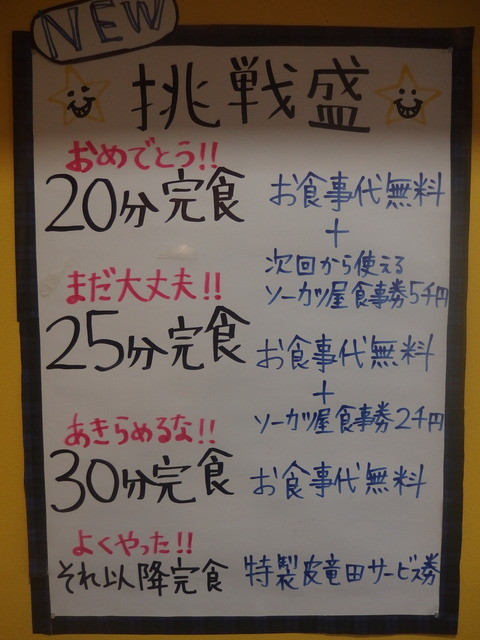 NEW
挑戦盛
おめでとう!!
20分完食
お食事代無料
+
次回から使える
ソーカツ屋食事券5千円
まだ大丈夫!!
25分完食
お食事代無料
+
ソーカツ屋食事券2千円
あきらめるな!!
30分完食
お食事代無料
よくやった!!
それ以降完食
特製皮竜田サービス券